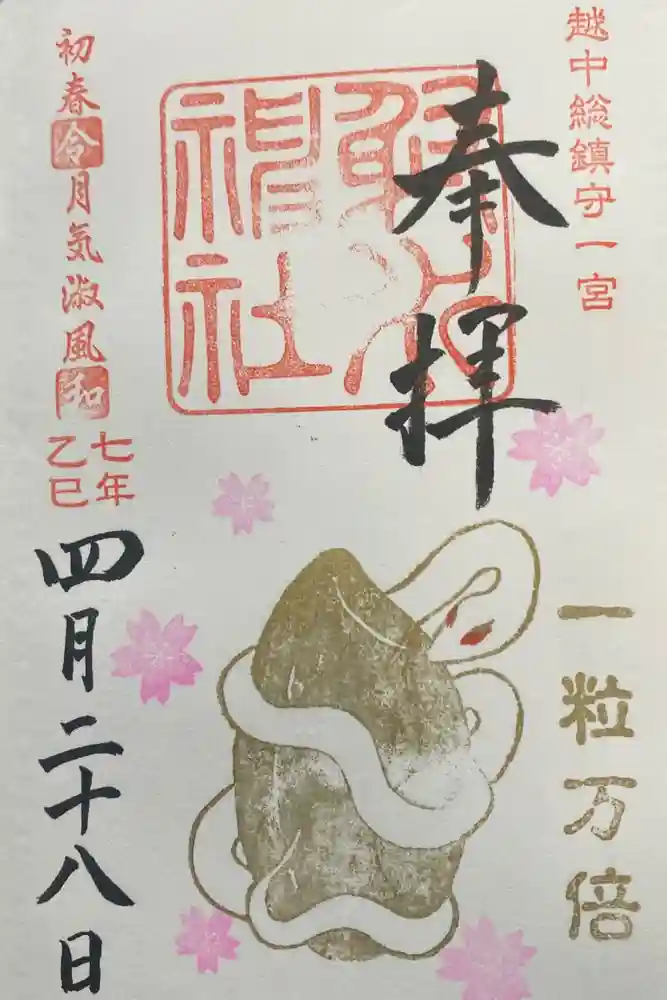 越中総鎮守一宮
奉拝
射水
神社
一粒万倍
初春令月気淑風和
七年
乙巳
四月二十八日